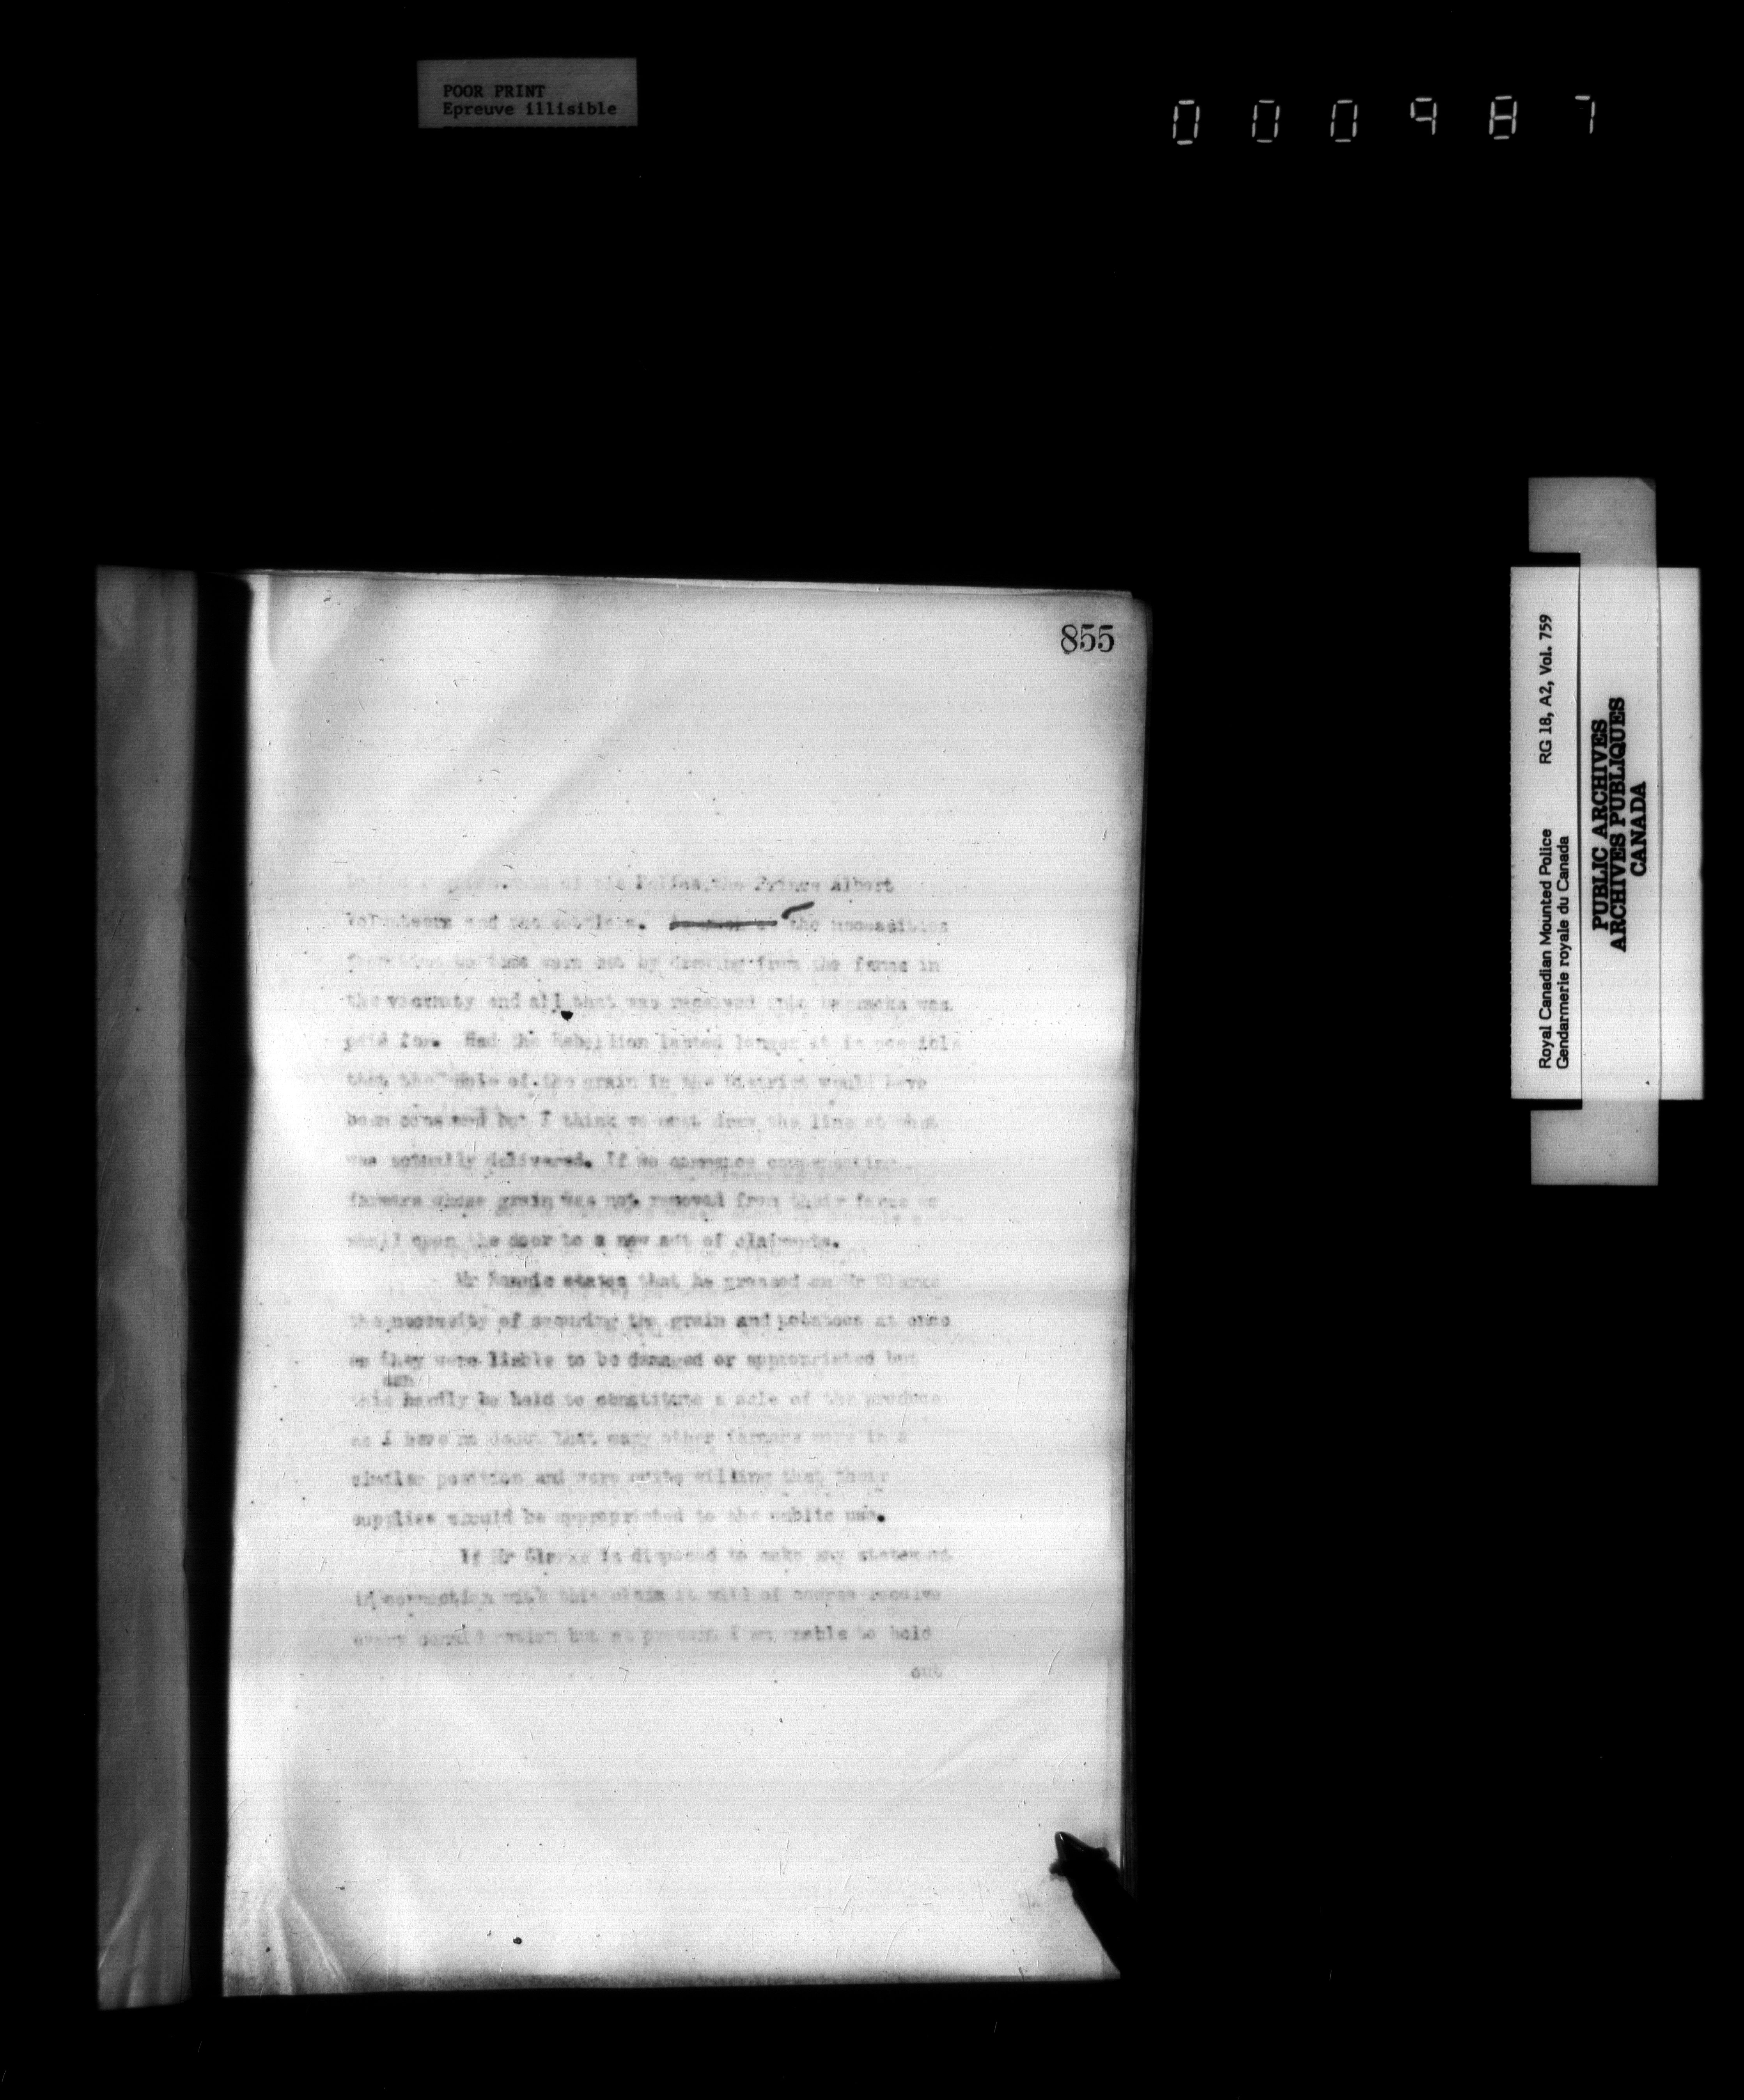 POOR PRINT
Epreuve illisible
000987
855
of the Police, the Prince Albert
Volunteers and the settlers. the necessities
from time to time were met by drawing from the farms in
the vicinity and all that was received into barracks was
paid for. Had the Rebellion lasted longer it is possible
that the whole of the grain in the District would have
been consumed but I think we must draw the line at what
was actually delivered. If we commence compensating
farmers whose grain was not removed from their farms we
shall open the door to a new set of claimants.
Mr states that he pressed on Mr Clarke
the necessity of securing the grain and potatoes at once
as they were liable to be damaged or appropriated but
can
this hardly be held to constitute a sale of the produce
as I have no doubt that many other farmers were in a
similar position and were quite willing that their
supplies should be appropriated to the public use.
If Mr Clarke is disposed to make any statement
in connection with this claim it will of course receive
every consideration but at present I am unable to hold
out
Royal Canadian Mounted Police RG 18, A2, Vol. 759
Gendarmerie royale du Canada
PUBLIC ARCHIVES
ARCHIVES PUBLIQUES
CANADA